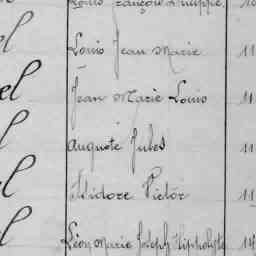 Louis François Philippe 10
l Louis Jean Marie 11
el Jean Marie Louis 11
l Auguste Jules 11
el Isidore Victor 11
l Léon Marie Joseph Hippolyte 14